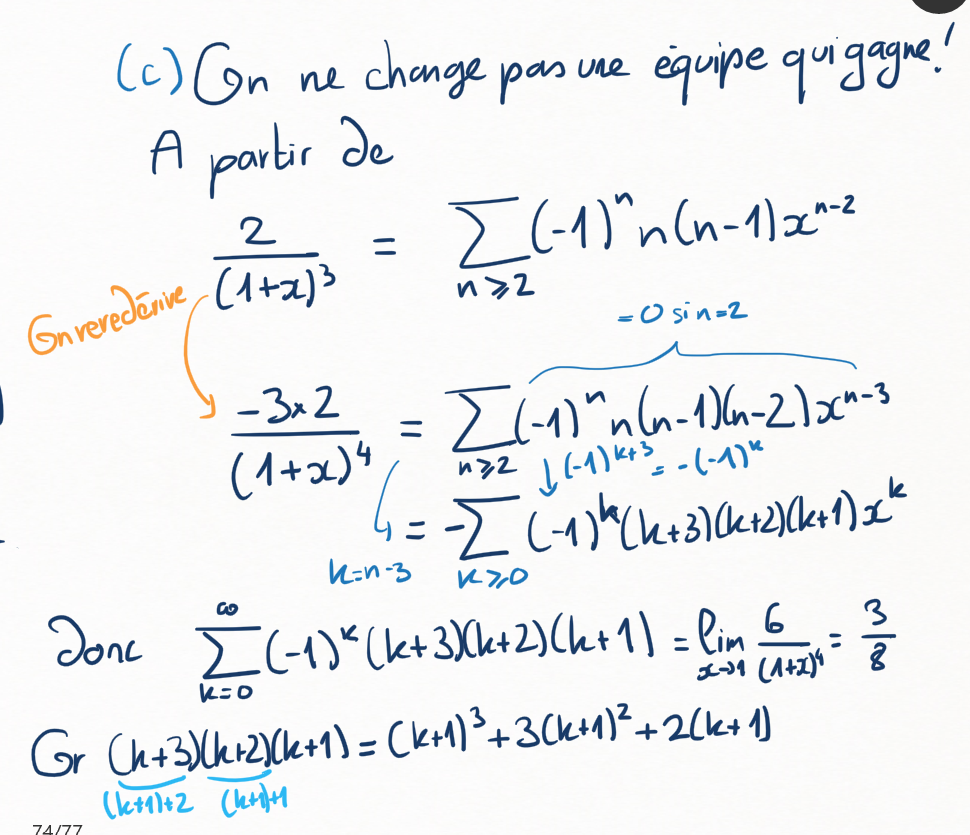 (c) On ne change pas une équipe qui gagne!
A partir de
2/(1+x)^3 = ∑_{n≥2} (-1)^n n(n-1)x^{n-2}
On reredérive
= 0 si n=2
-3×2/(1+x)^4 = ∑_{n≥2} (-1)^n n(n-1)(n-2)x^{n-3}
↓(-1)^{k+3} = -(-1)^k
= -∑_{k≥0} (-1)^k (k+3)(k+2)(k+1)x^k
k=n-3
Donc ∑_{k=0}^{∞} (-1)^k (k+3)(k+2)(k+1) = lim_{x→1} 6/(1+x)^4 = 3/8
Or (k+3)(k+2)(k+1) = (k+1)^3 + 3(k+1)^2 + 2(k+1)
(k+1)+2 (k+1)+1
74/77